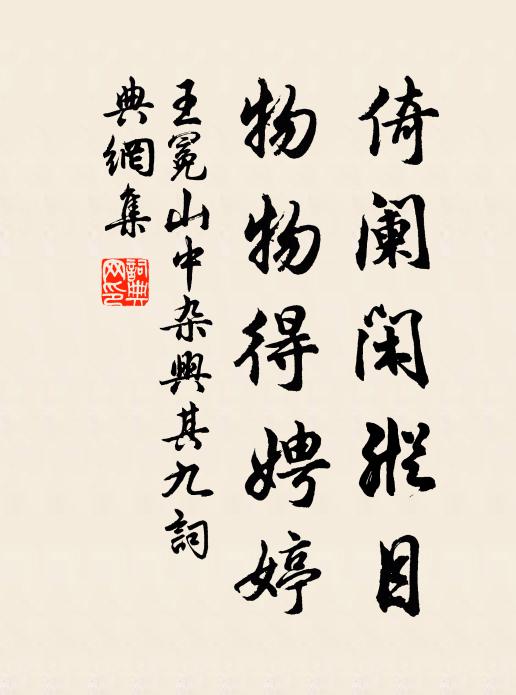 倚阑闲縱目
物物得娉婷
王冕山中杂興其九詞
典網集
詞典
网印